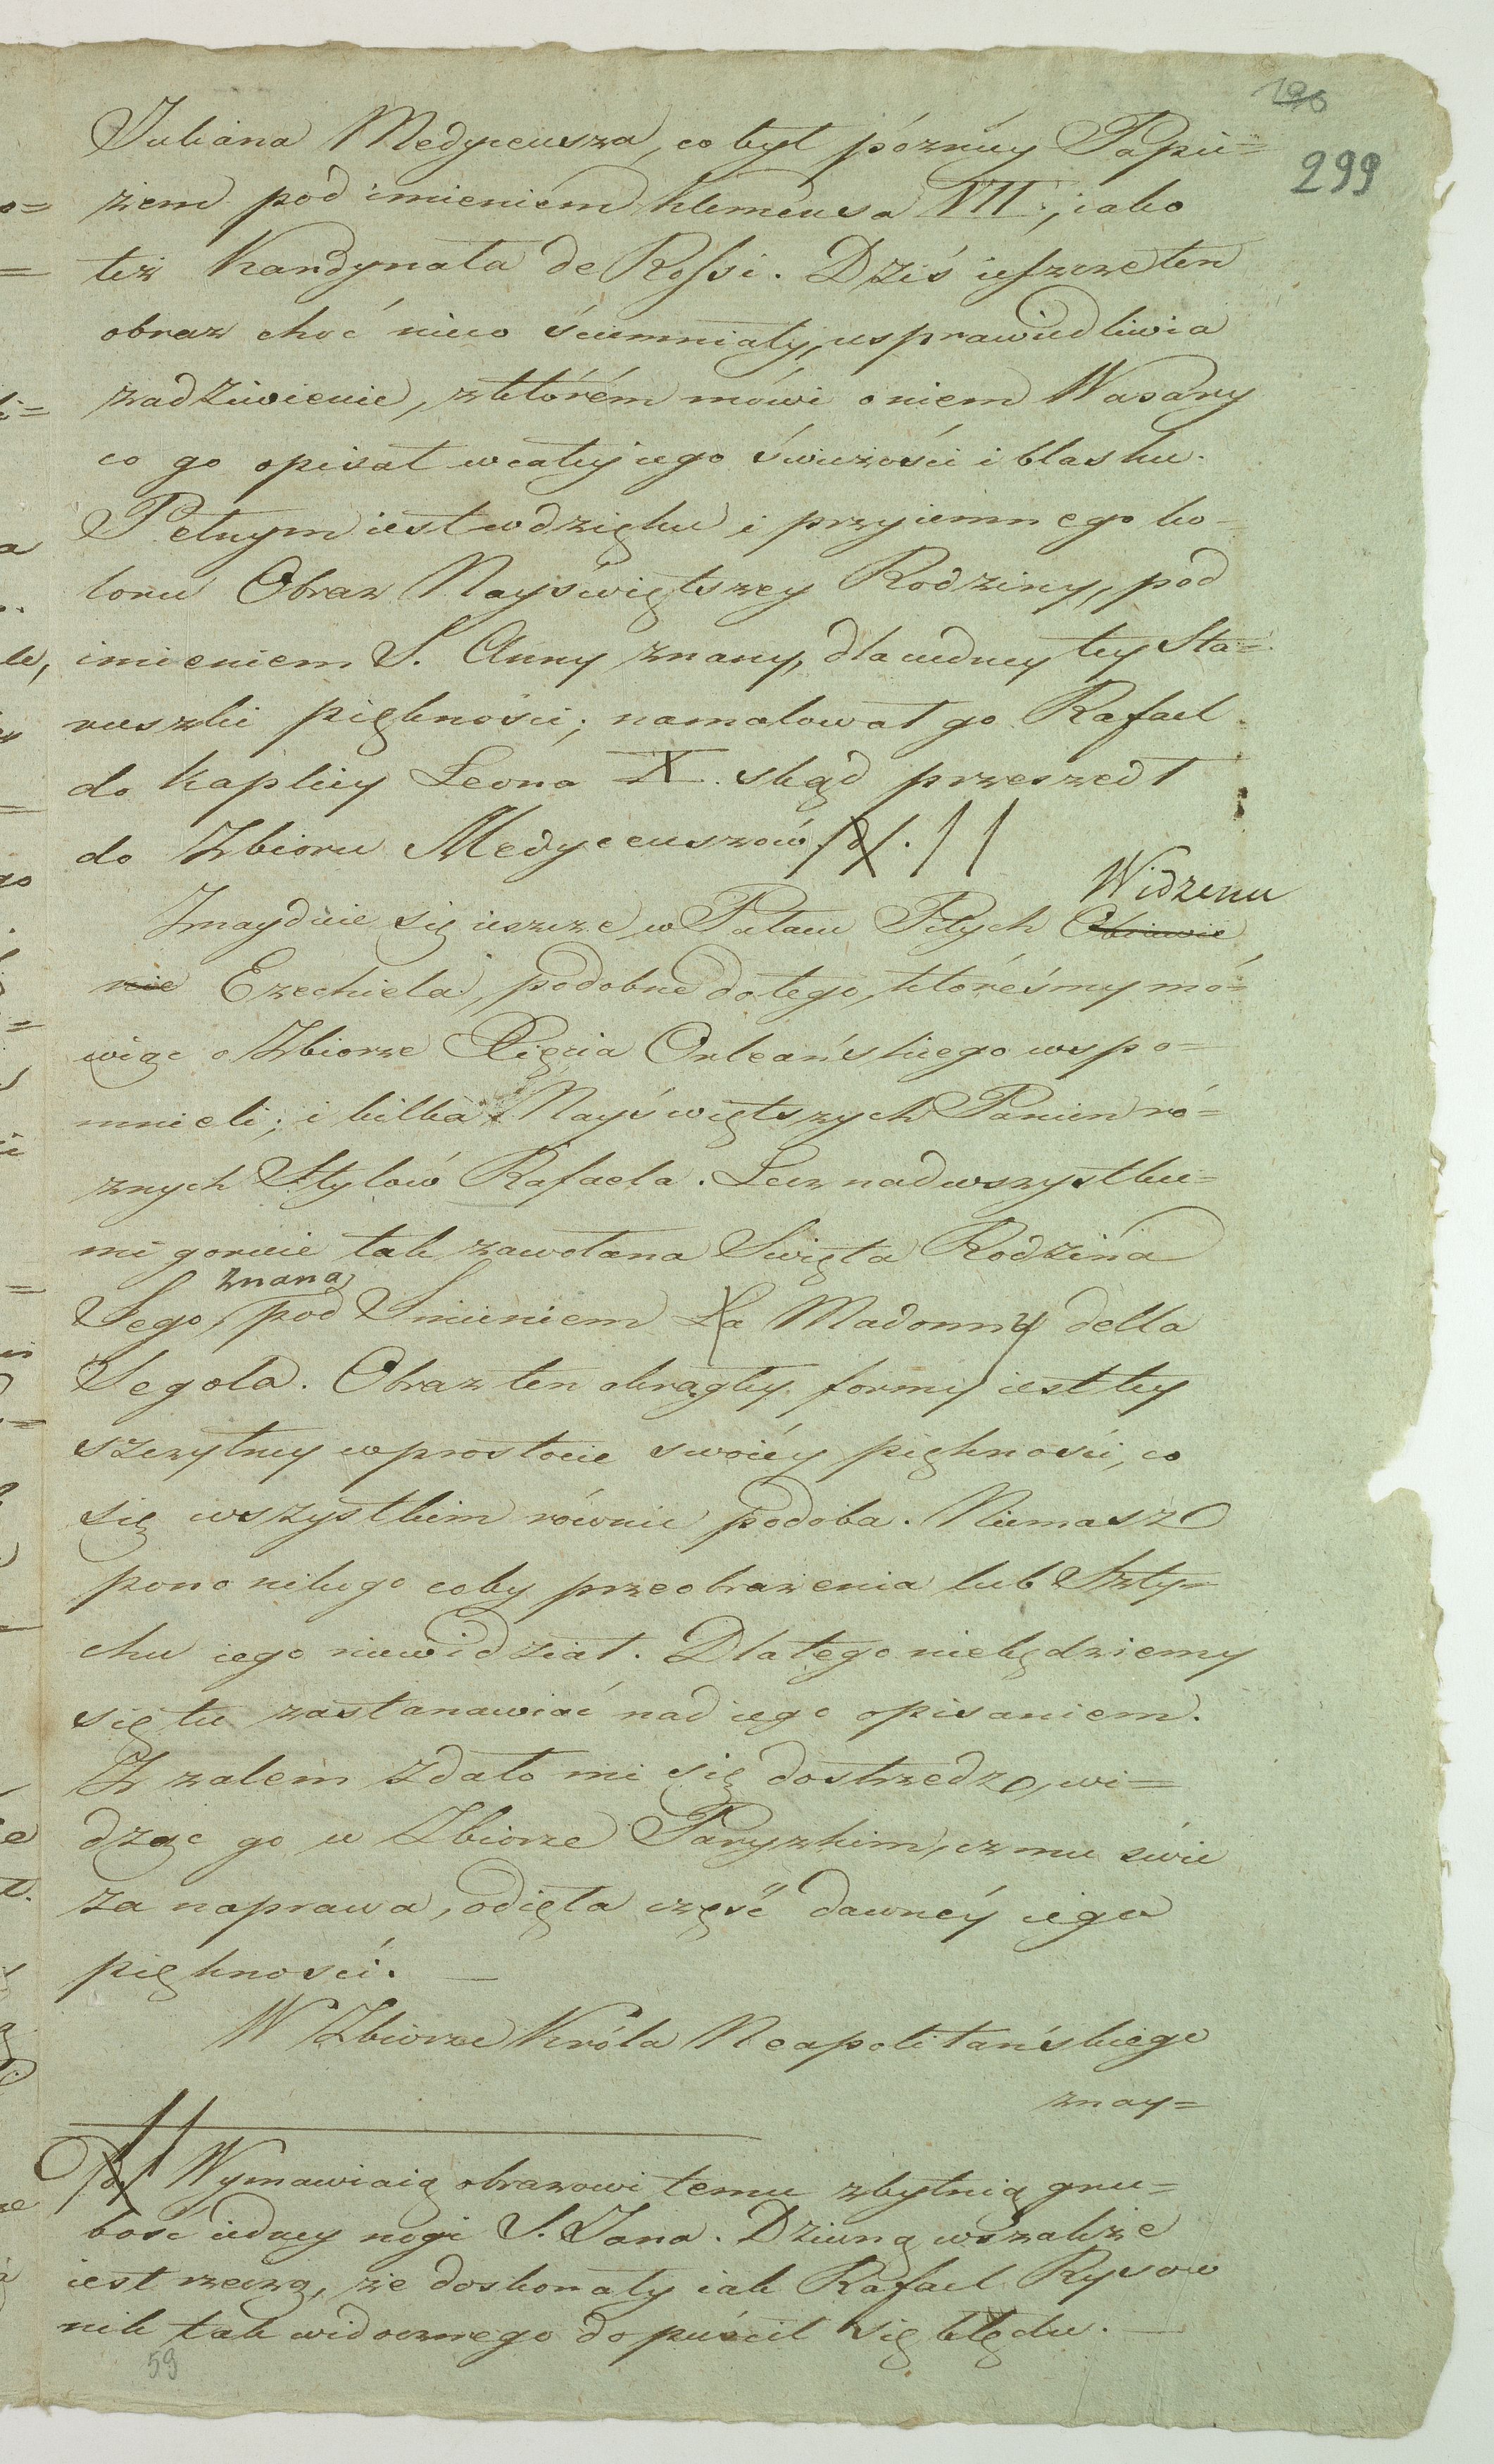 196
299
Juliana Medyceusza, co był pózniey Papie=
żem pod imieniem Klemensa VII., iako
też Kardynała de Rossi. Dziś ieszcze ten
obraz choć nieco ściemniały, usprawiedliwia
zadziwienie, z którém mówi o niem Wasary
co go opisał w całey iego świeżości i blasku.
Pełnym iest wdzięku i przyiemnego ko-
loru Obraz Nayświętszey Rodziny, pod
imieniem S. Anny znany, dla cudney tey Sta=
ruszki piękności; namalował go Rafael
do kaplicy Leona X. skąd przeszedł
do Zbioru Medyceuszów. //
Widzenie
Znayduie się ieszcze w Pałacu Pitych Obiawie
nie Ezechiela, podobne do tego, któreśmy mó=
wiąc o Zbiorze Xięcia Orleańskiego wspo=
mnieli; i kilka Nayświętszych Panien ró=
żnych Stylów Rafaela. Lecz nad wszystkie=
mi goruie tak zawołana Święta Rodzina
znana
Jego, pod Imieniem La Madonny della
Segola. Obraz ten okrągłey formy iest tey
szczytney w prostocie swoiéy piękności, co
się wszystkim równie podoba. Niemasz
pono nikogo coby przeobrażenia lub Szty=
chu iego niewidział. Dlatego niebędziemy
się tu zastanawiać nad iego opisaniem.
Z żalem zdało mi się dostrzedz, wi=
dząc go w Zbiorze Paryzkim, iż mu świe
ża naprawa, odięła część dawnéy iego
piękności. —
W Zbiorze Króla Neapolitańskiego
znay=
// Wymawiaią obrazowi temu zbytnią gru=
bość iedney nogi S. Jana. Dziwną wszakże
iest rzeczą, że doskonały iak Rafael Rysow
nik tak widocznego dopuścił się błędu. —
59